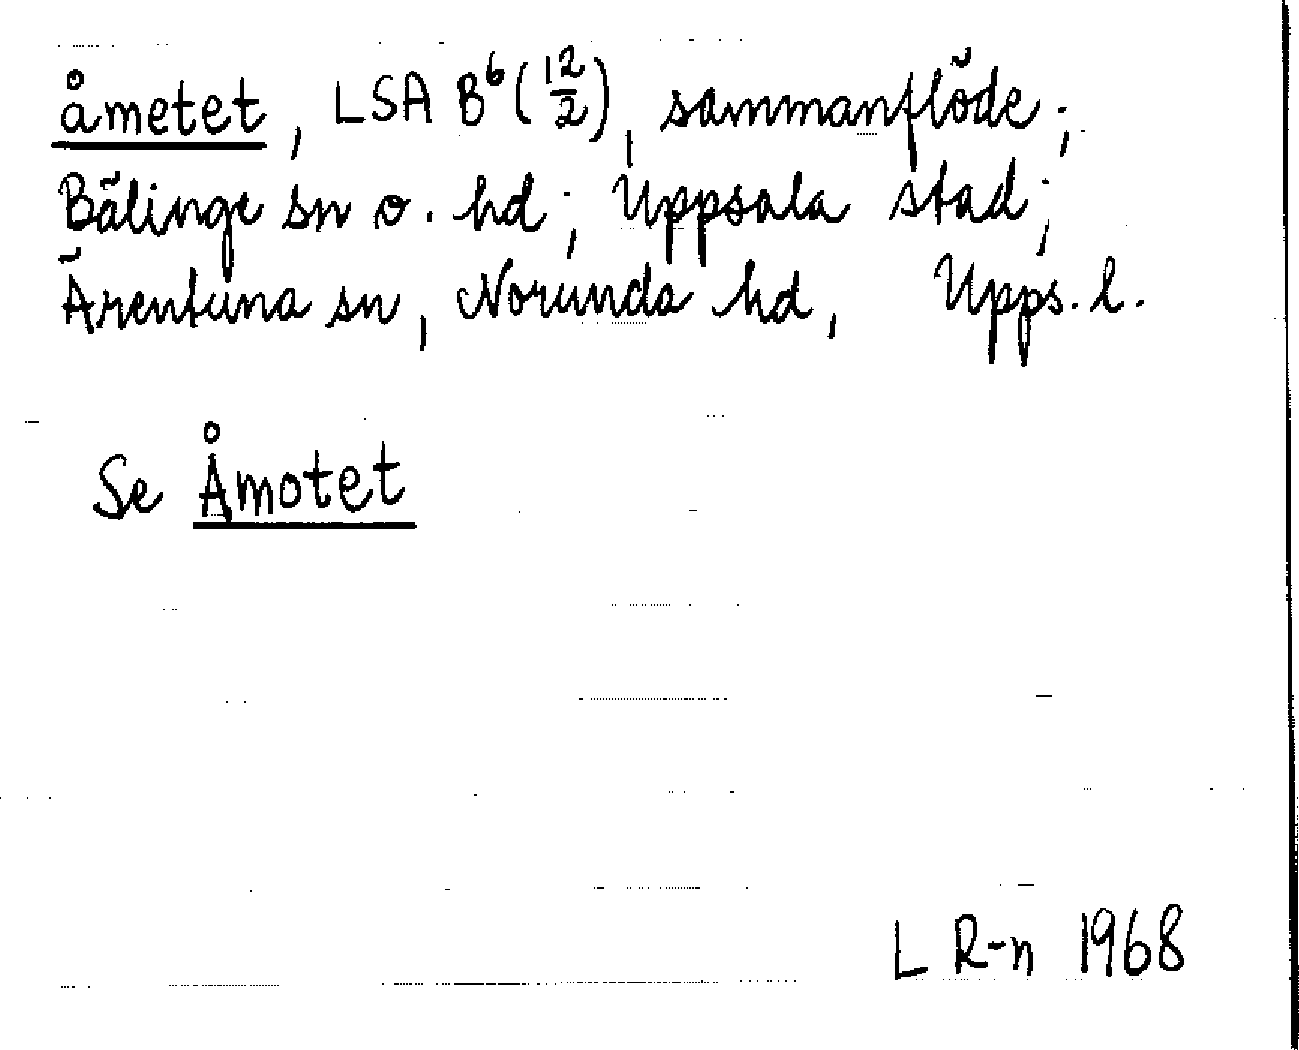 åmetet, LSA B⁶ (12/2), sammanflöde;
Bälinge sn o. hd; Uppsala stad;
Ärentuna sn, Norunda hd, Upps. l.
Se Åmotet
L R-n 1968